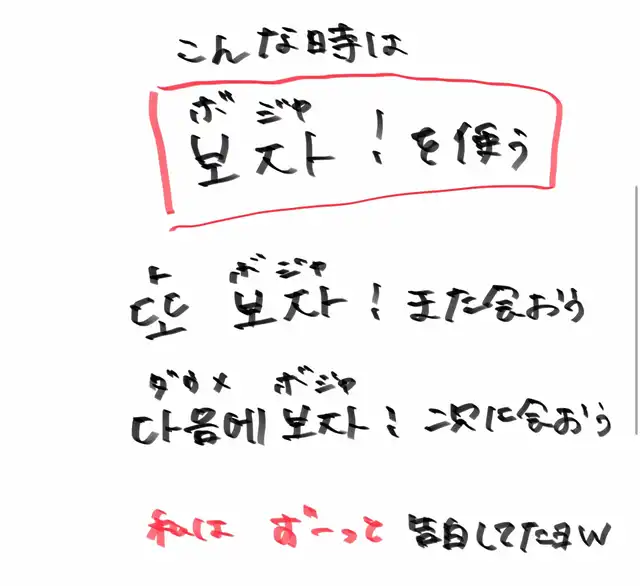 こんな時は
ボジャ
보자!を使う
ト ボジャ
또 보자!また会おう
ダウメ ボジャ
다음에 보자!次に会おう
私は ずーっと 告白してたヨw